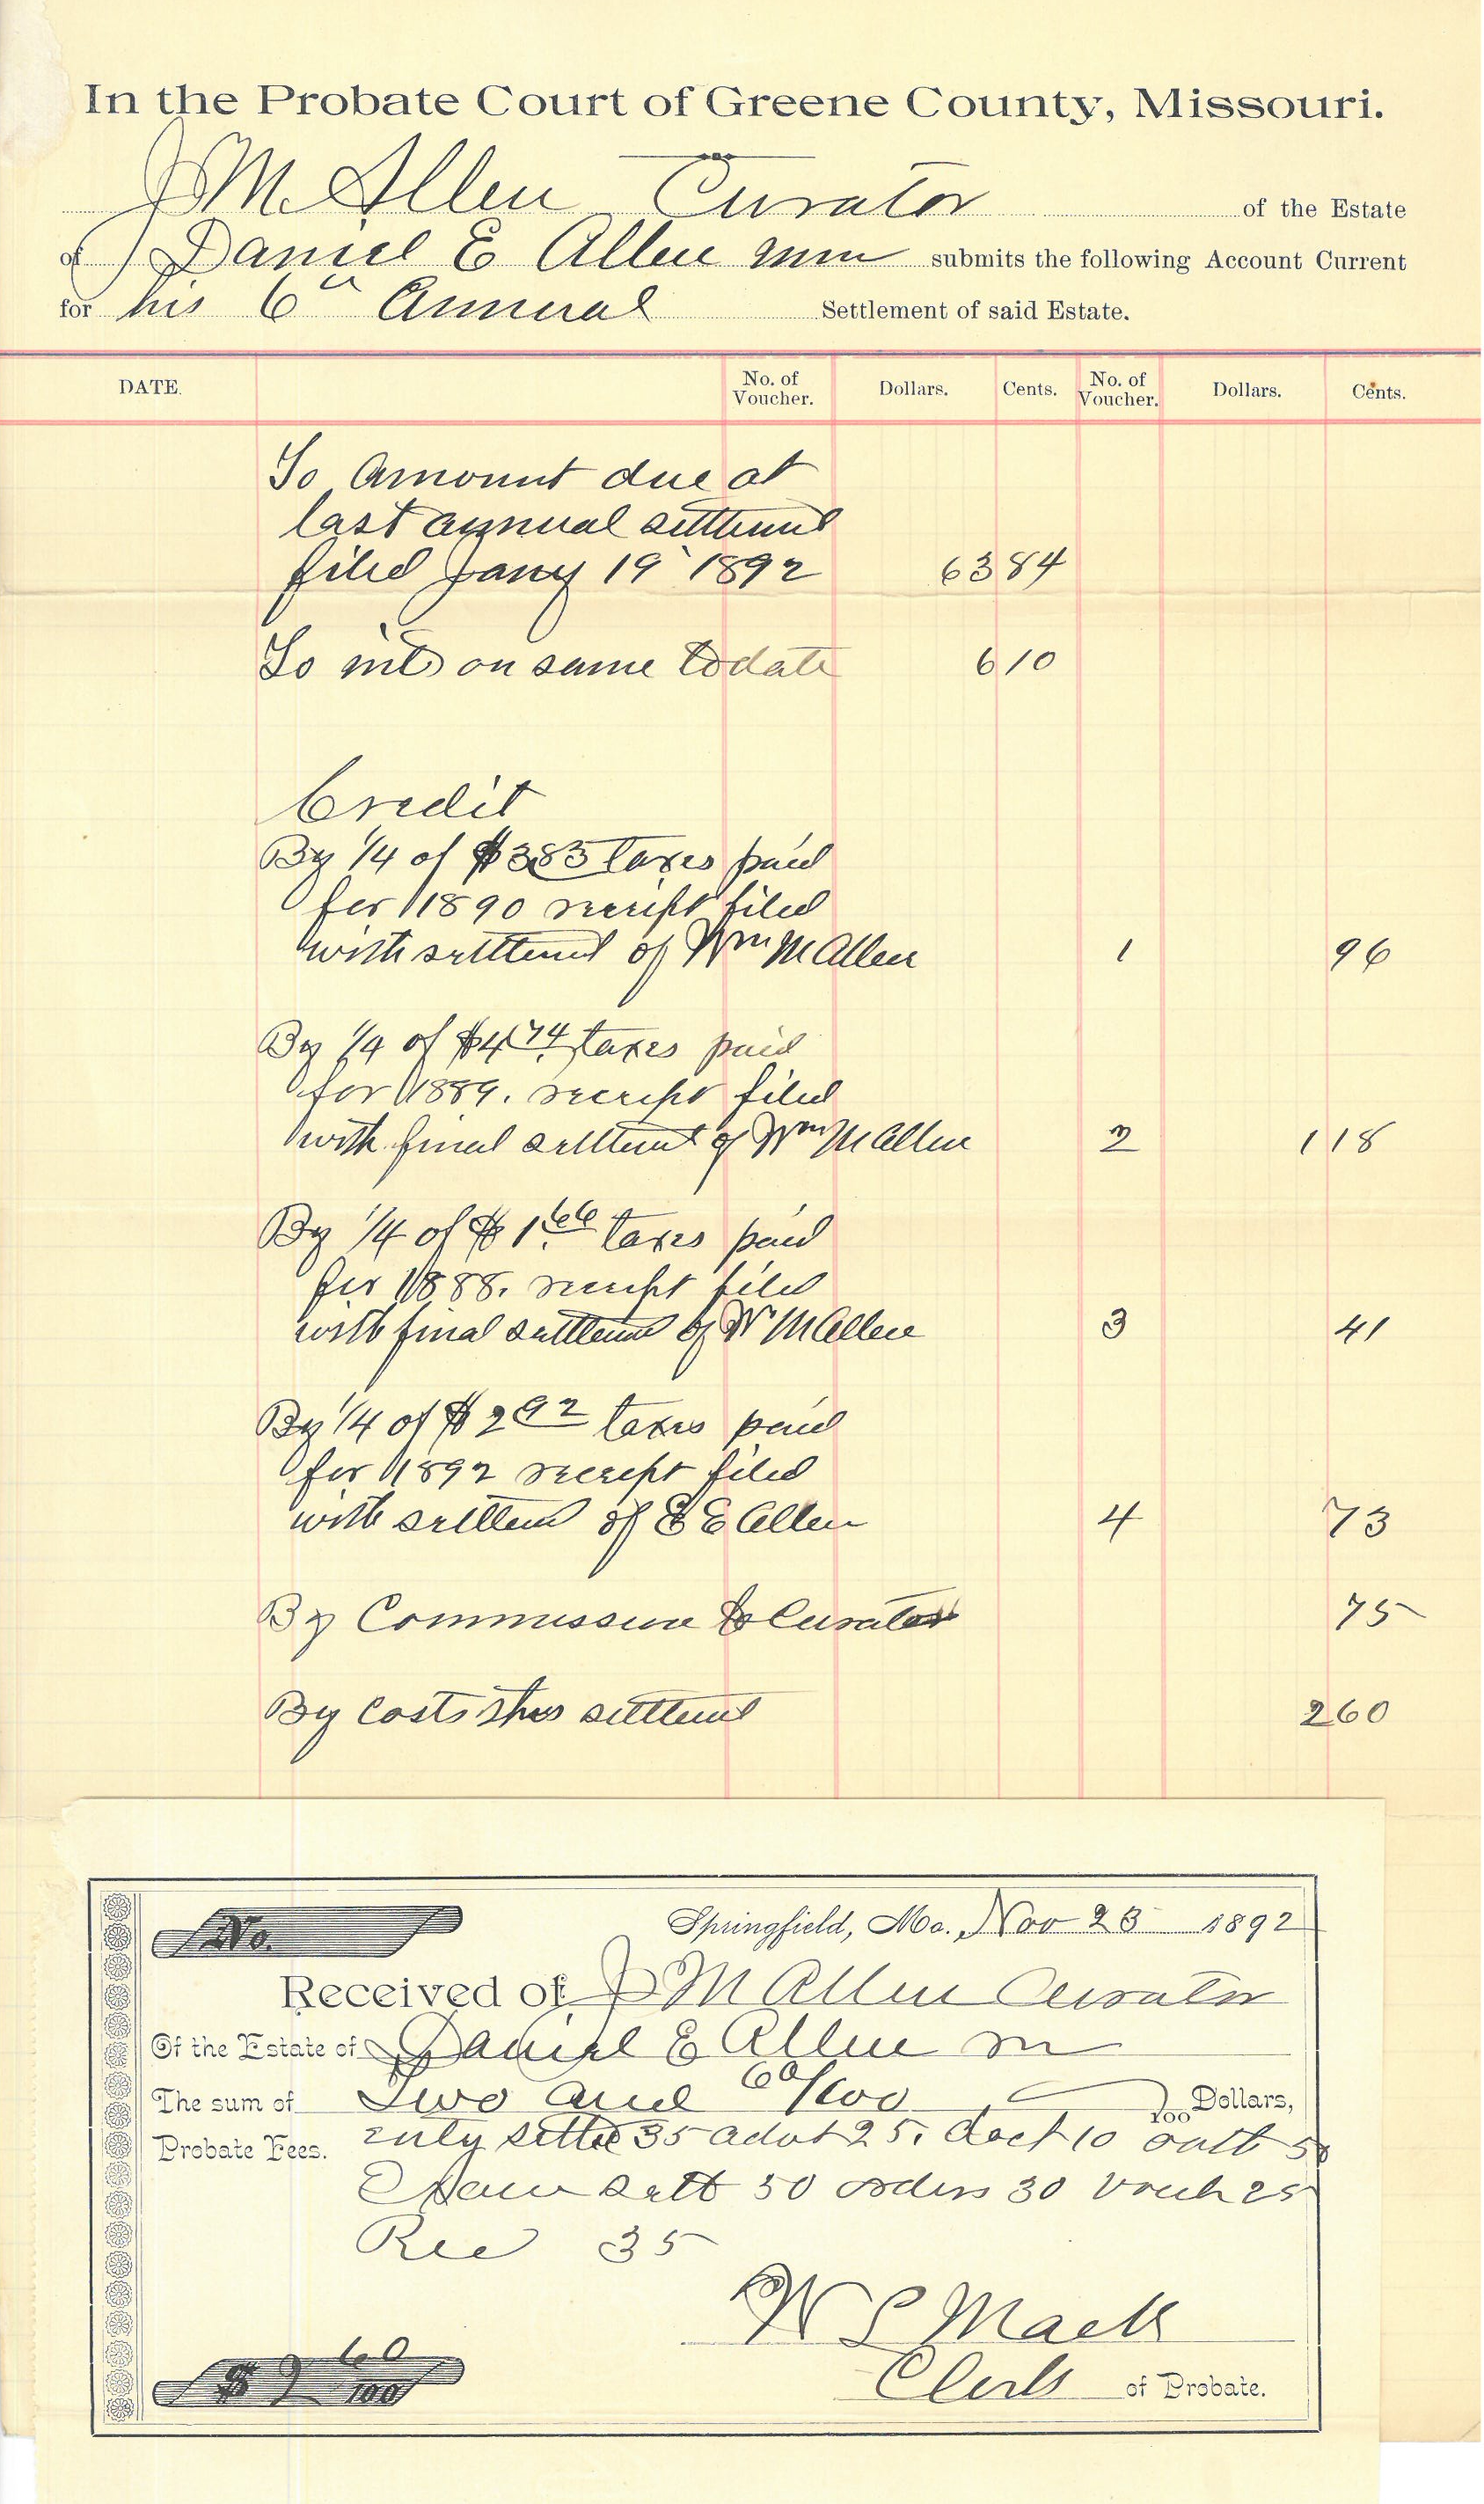 In the Probate Court of Greene County, Missouri.
J M Allen Curator of the Estate
of Daniel E Allen min submits the following Account Current
for his 6th Annual Settlement of said Estate.
DATE. No. of Voucher. Dollars. Cents. No. of Voucher. Dollars. Cents.
To Amount due at
last annual settlemt
filed Jany 19 1892 63 84
To int on same to date 6 10
Credit
By 1/4 of $3 85 taxes paid
for 1890 receipt filed
with settlemt of Wm M Allen 1 96
By 1/4 of $4 74 taxes paid
for 1889. receipt filed
with final settlemt of Wm M Allen 2 1 18
By 1/4 of $1 66 taxes paid
for 1888. receipt filed
with final settlemt of W M Allen 3 41
By 1/4 of $2 92 taxes paid
for 1892 receipt filed
with settlemt of E E Allen 4 73
By Commission to Curator 75
By Costs this settlemt 2 60
No.
Springfield, Mo., Nov 23 1892
Received of J M Allen Curator
Of the Estate of Daniel E Allen m
The sum of Two and 60/100 100 Dollars,
Probate Fees. settle 35 advt 25. doct 10 sett 50
Exam sett 50 orders 30 Vouch 25
Rec 35
W L Mack
Clerk of Probate.
$ 2 60/100